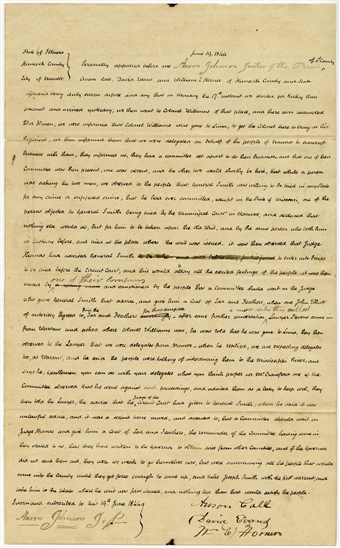 State of Illinois
Hancock County
City of Nauvoo
June 19, 1844
Personally appeared before me Aaron Johnson Justice of the Peace of said County
Anson Call, David Evans and William E Horner of Hancock County and State
aforesaid being duly sworn depose and say that on Monday the 17th instant we started for
instant and arrived yesterday, we then went to Colonel Williams of that place, and there soon
we were informed that Colonel Williams was gone to Lima, to get the Colonel there to bring out his
Regiment, we then informed them that we were delegated on behalf of the people of Nauvoo to transact
business with them, they informed us, they had a committee set apart to do their business, and that one of their
Committee was then present, one was absent, and the other two would shortly be here, that while a person
was seeking the two men, we observed to the people that General Smith was willing to be tried in
for any crime or supposed crime, that he had ever committed, except in the State of Missouri, one of the
persons objected to General Smith being tried by the Municipal Court in Nauvoo, and declared that
nothing else would do, but for him to be taken upon the old Writ, and by the same person who took him
in Custody before, and tried at the place where the writ was issued. it was then observed that Judge
Thomas had advised General Smith to enter into bonds
to be tried before the Circuit Court, and this would allay all the excited feelings of the people. it was then
moved by one of their company by the people that a Committee should wait on the Judge
who gave General Smith that advice, and give him a Coat of Tar and Feathers, when one John Elliott
for this purpose
after some further conversation, Lawyer Stevens came in
from Warsaw and asked where Colonel Williams was, he was told that he was gone to Lima, they then
observed to the Lawyer that we were delegates from Nauvoo, when he replied, we are expecting delegates
too, at Warsaw, and he said the people were talking of introducing them to the Mississippi River, and
says he, Gentlemen you can do with your delegates what you think proper Mr Crawford one of the
Committee observed that he went against such proceedings, and advised them as a body to keep cool, they
then told the Lawyer, the advice that the Judge of the Circuit Court had given to General Smith, when he said it was
unlawful advice, and it was a second time moved, and seconded to, that a Committee should wait on
Judge Thomas and give him a Coat of Tar and Feathers, the remainder of the Committee having come in
they stated to us, that they had written to the Governor to obtain aid from other Counties, and if the Governor
did not send them aid, they were not weak to go themselves now, but were summoning all the people that would
come into the County until they got force enough to come on, and take Joseph Smith with the first warrant, and
take him to the place where the writ was first issued, and nothing less than that would satisfy the people.
Sworn and subscribed to this 19th June 1844
Aaron Johnson J. P.
Anson Call
David Evans
Wm E Horner